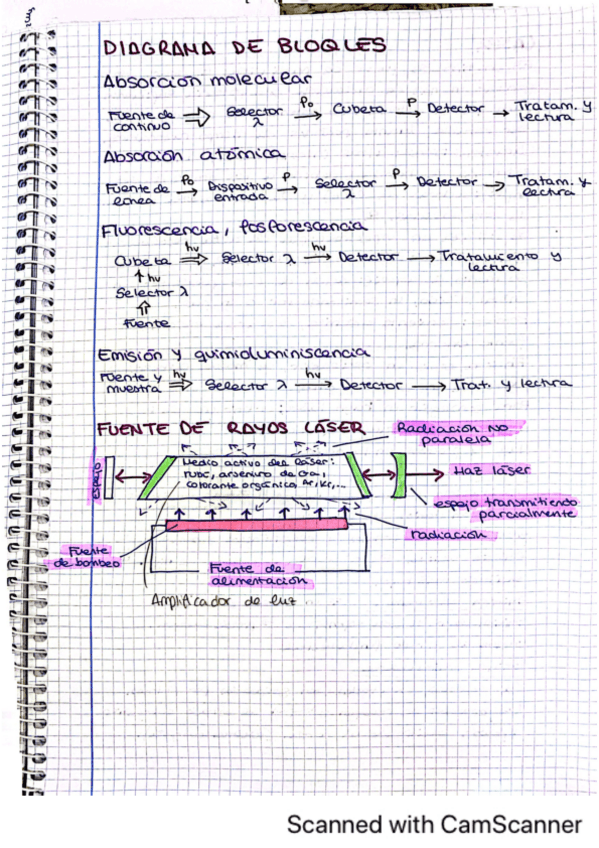 DIAGRAMA DE BLOQUES
Absorción molecular
Fuente de continuo ⇒ Selector λ →P₀ Cubeta →P Detector → Tratam. y lectura
Absorción atómica
Fuente de línea →P₀ Dispositivo entrada →P Selector λ →P Detector → Tratam. y lectura
Fluorescencia, fosforescencia
Cubeta ⇒hν Selector λ →hν Detector → Tratamiento y lectura
↑hν
Selector λ
⇑
Fuente
Emisión y quimioluminiscencia
Fuente y muestra ⇒hν Selector λ →hν Detector → Trat. y lectura
FUENTE DE RAYOS LÁSER
Radiación NO paralela
espejo
Medio activo del láser:
rubí, arseniuro de Ga,
colorante orgánico, Ar, Kr,...
Haz láser
espejo transmitiendo parcialmente
radiación
Fuente de bombeo
Fuente de alimentación
Amplificador de luz
Scanned with CamScanner